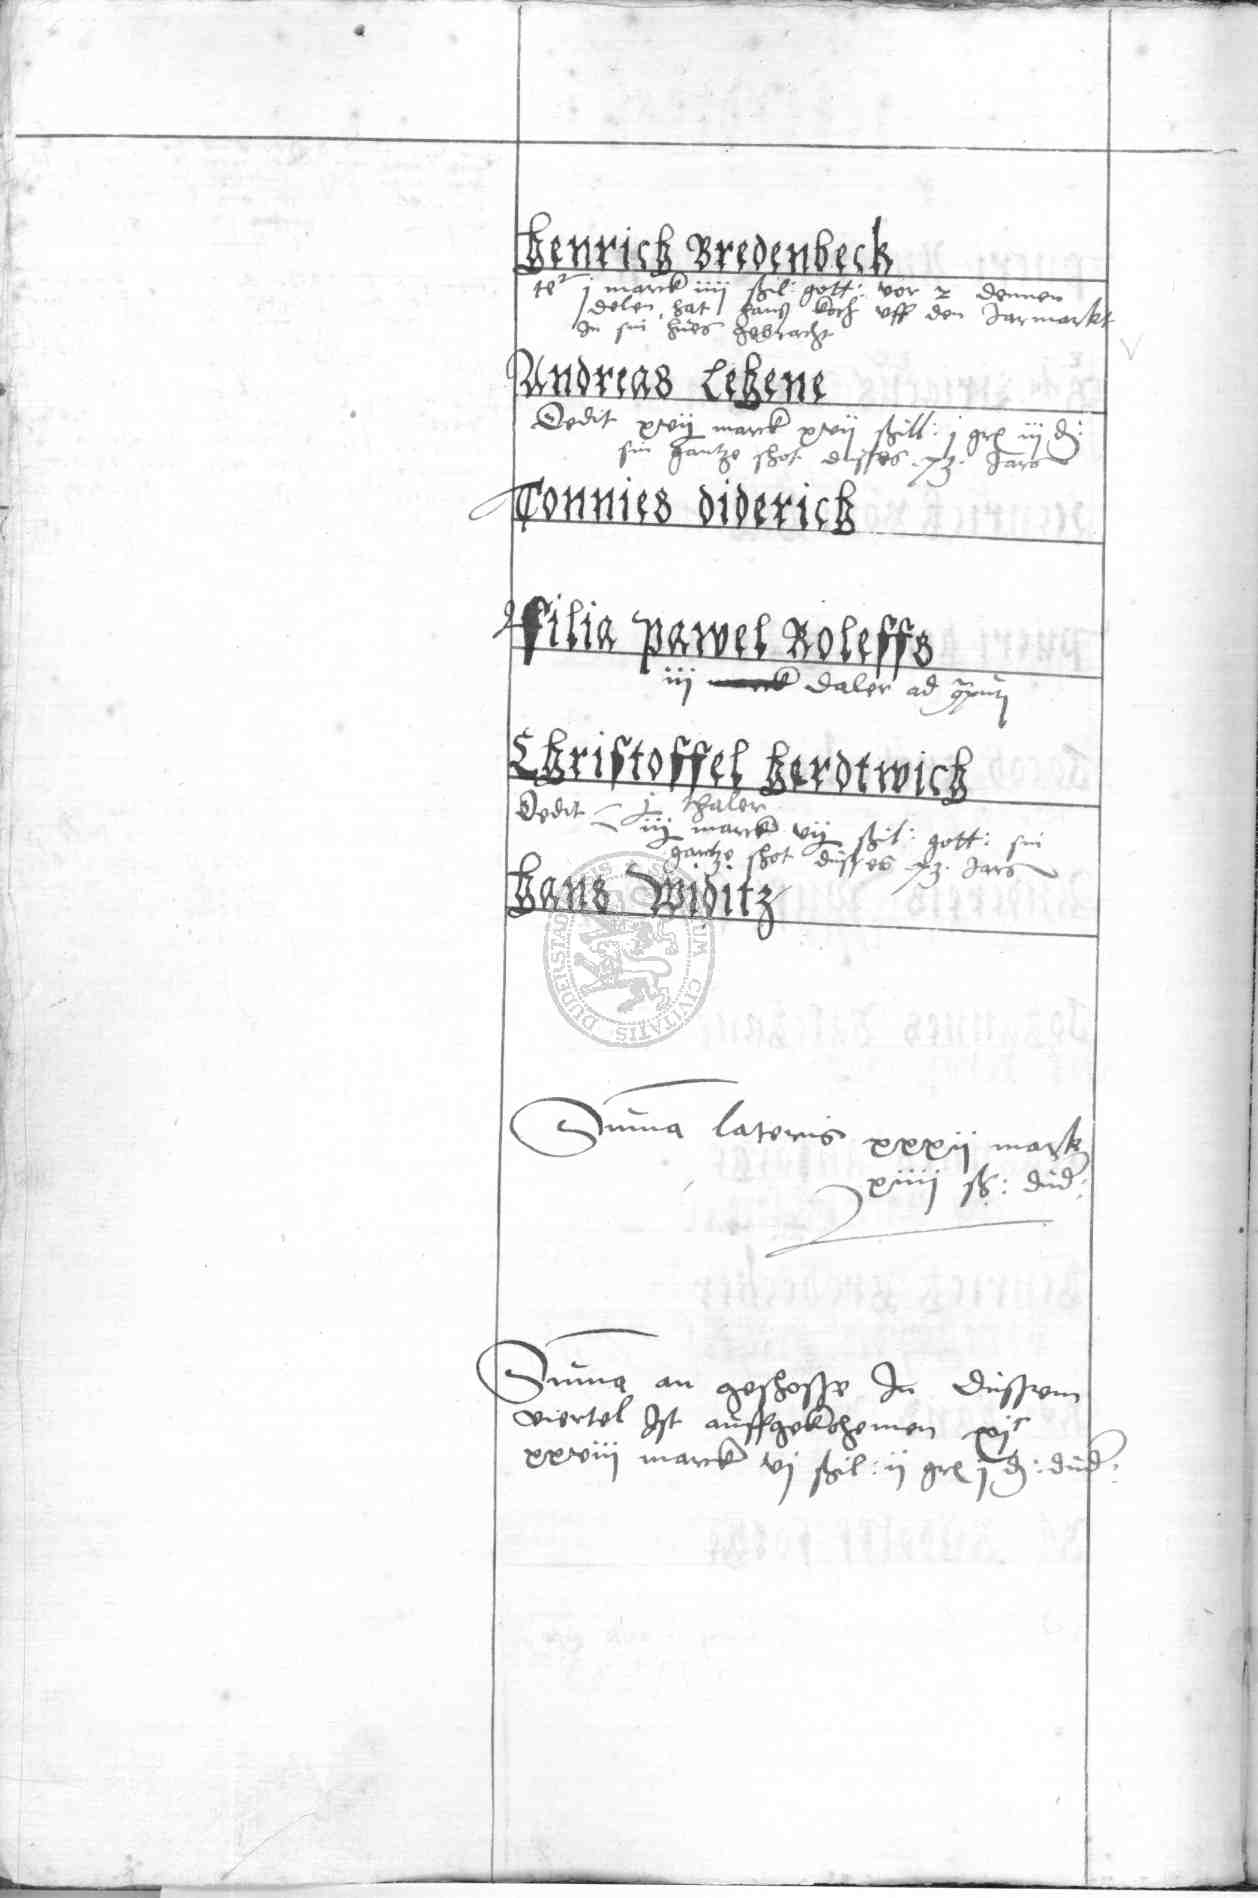 Henrich Bredenbeck
j marck iiii ßil: gott: vor 2 dennen
delen hat hans koch uff den Jarmarkt
In sin hues gebracht
Andreas Lehene
Dedit xvij marck xvii ßill: j gr iij d:
sin gantze shot disses 73. Jars
Tonnies Diderich
filia Pawel Roleffs
iij daler ad
Christoffel Herdtwich
Dedit j thaler
iij marck vij ßil: gott: sin
gantze shot disses 73. Jars
Hans Widitz
SIGILLUM CIVITATIS DUDERSTAD
Suma lateris xxxij mark
xiiij ß: dud:
Suma an geshosse In dussem
viertel Ist auffgekohemen xijc
xxviii marck vj ßil: ij gr j d: dud: